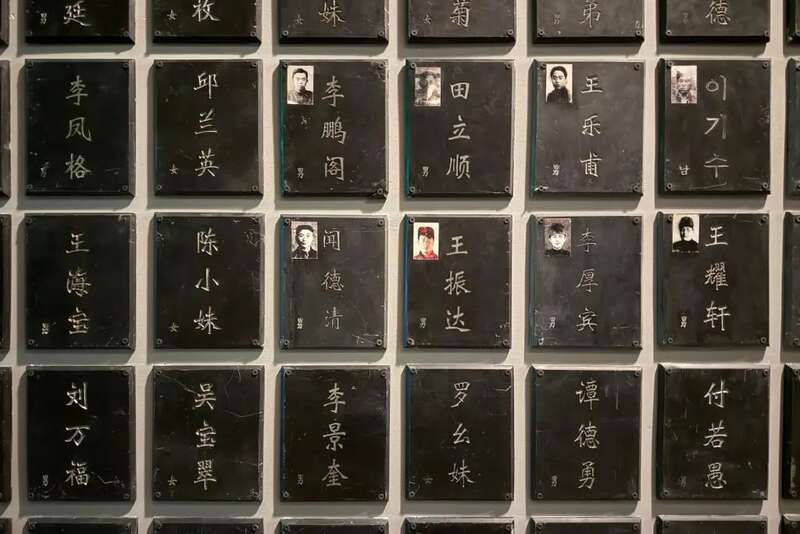 廷
男
妹
女
菊
弟
德
男
李凤格
男
邱兰英
女
李鹏阁
男
田立顺
男
王乐甫
男
이기수
남
王海宝
男
陈小妹
女
闻德清
男
王振达
男
李厚宾
男
王耀轩
男
刘万福
男
吴宝翠
女
李景奎
男
罗幺妹
女
谭德勇
男
付若愚
男